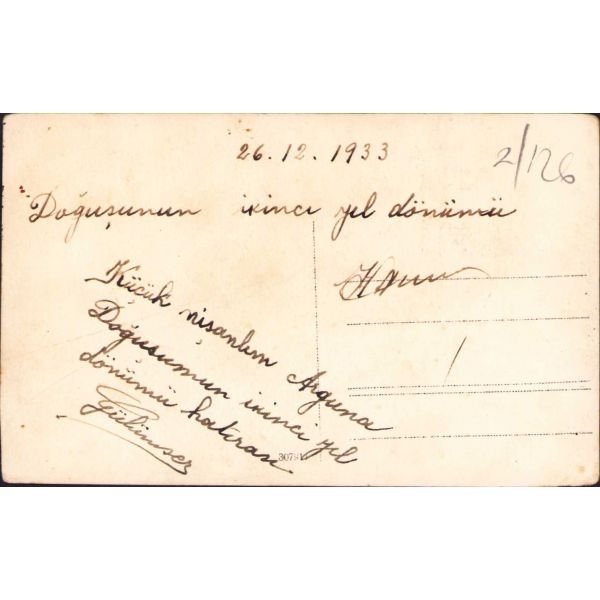 26.12.1933
2/126
Doğuşunun ikinci yıl dönümü
Küçük nişanlım Arguna
Doğuşumun ikinci yıl
dönümü hatırası
Gülümser